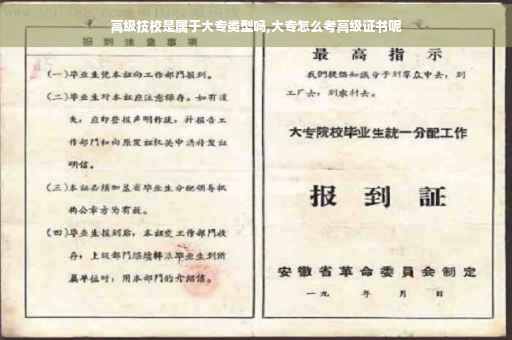 高级技校是属于大专类型吗,大专怎么考高级证书呢
报到注意事项
(一)毕业生凭本证向工作部门报到。
(二)毕业生对本证应注意保存。如有遗
失,应即登报声明作废,并报告工
作部门和向原发证机关申请补发证
明信。
(三)本证必须加盖省毕业生分配领导机
构公章方为有效。
(四)毕业生报到后,本证交工作部门收
存;上级部门
毕业生到所
属单位时,用本部门的介绍信。
最高指示
我们提倡知识分子到群众中去,到
工厂去,到农村去。
大专院校毕业生統一分配工作
报到証
安徽省革命委員会制定
一九 年 月 日